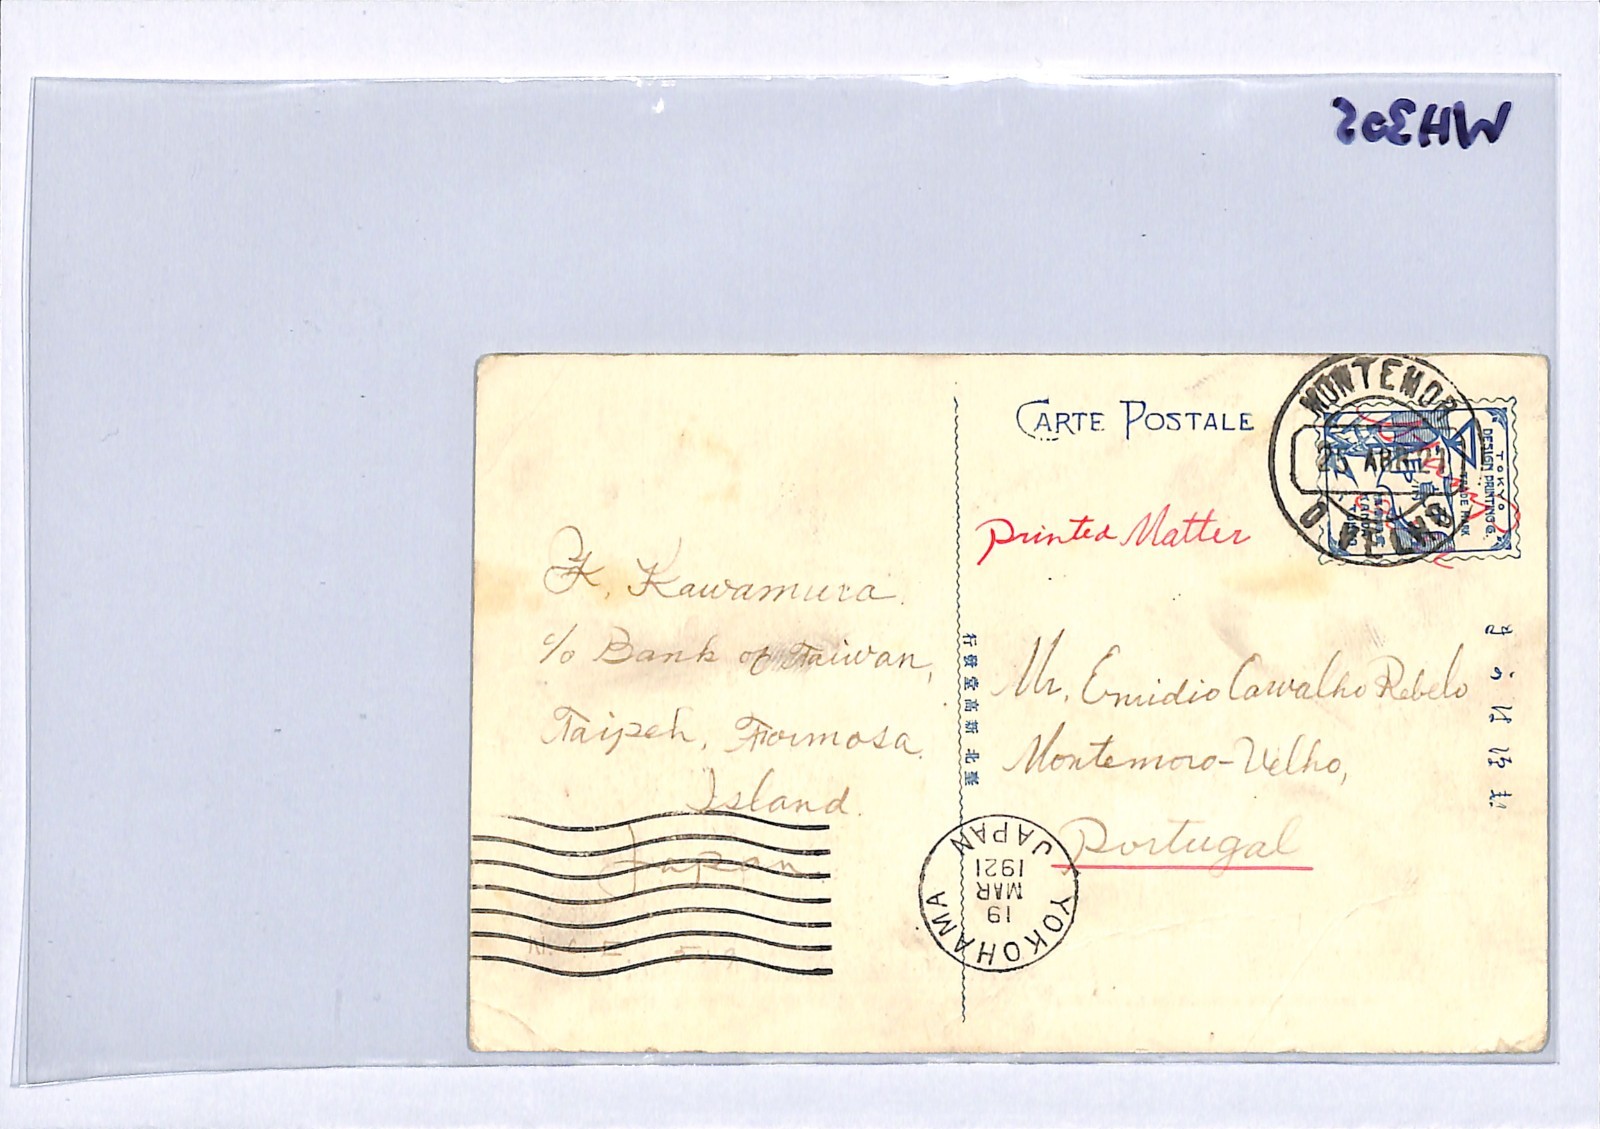 WH305
CARTE POSTALE
MONTEMOR
ABR 21
O VELHO
TOKYO
DESIGN PRINTING Co.
TRADE MARK
Printed Matter
K. Kawamura.
c/o Bank of Taiwan,
Taipeh, Formosa.
Island.
Japan.
行發堂高新北臺
Mr. Emidio Carvalho Rebelo
Montemoro-Velho,
Portugal
YOKOHAMA
19
MAR
1921
JAPAN